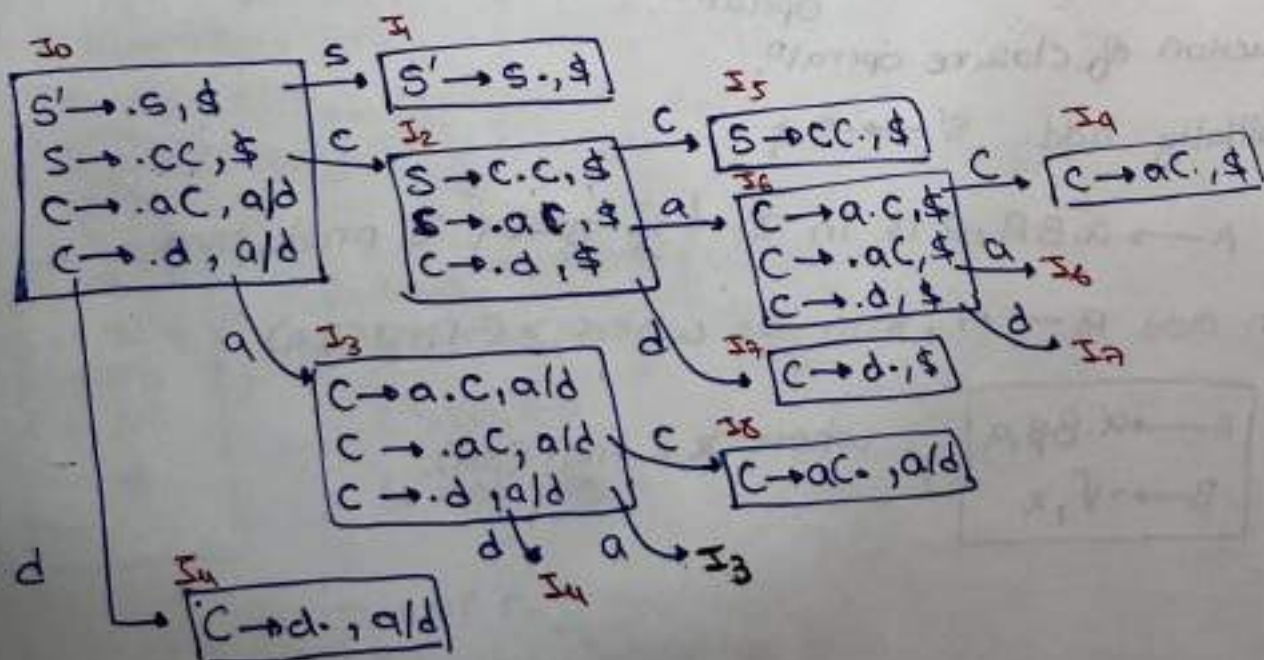 I0
S' → .S, $
S → .CC, $
C → .aC, a/d
C → .d, a/d
S
I1
S' → S., $
C
I2
S → C.C, $
S → .aC, $
C → .d, $
C
I5
S → CC., $
a
I6
C → a.C, $
C → .aC, $
C → .d, $
C
I9
C → aC., $
a
I6
d
I7
d
I7
C → d., $
a
I3
C → a.C, a/d
C → .aC, a/d
C → .d, a/d
C
I8
C → aC., a/d
d
I4
a
I3
d
I4
C → d., a/d